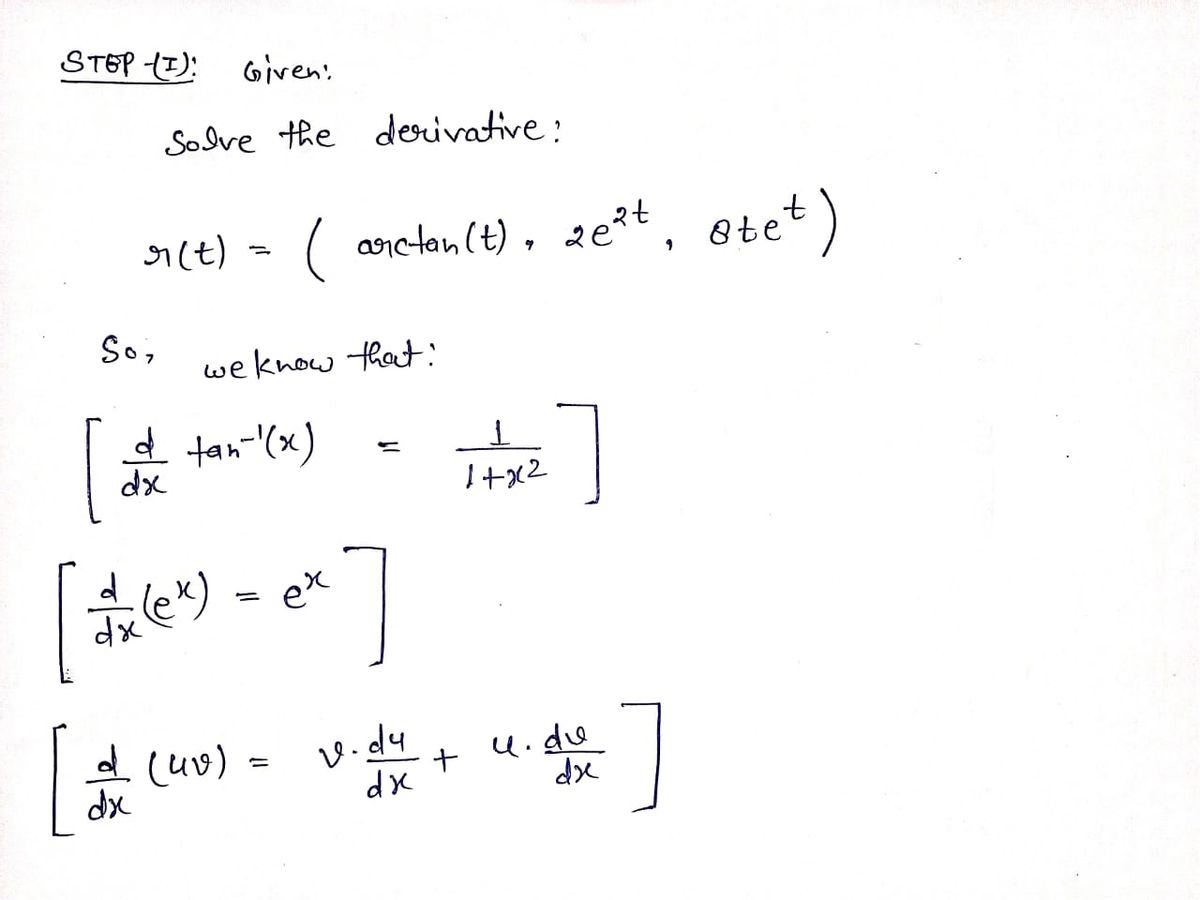 STEP-(I): Given:
Solve the derivative:
r(t) = ( arctan(t), 2e^{2t}, 8te^{t} )
So, we know that:
[ d/dx tan⁻¹(x) = 1/(1+x²) ]
[ d/dx (e^x) = e^x ]
[ d/dx (uv) = v. du/dx + u. dv/dx ]